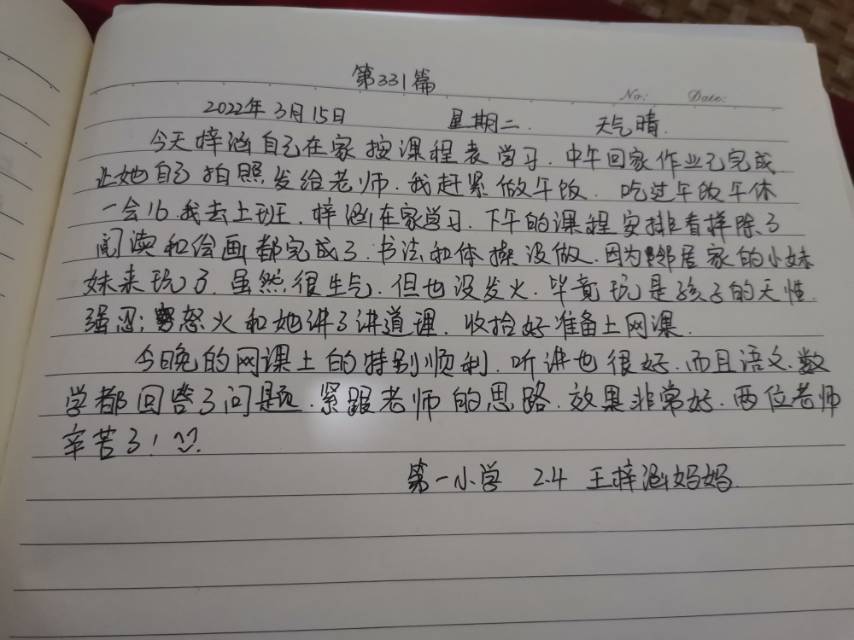 第331篇
No: Date:
2022年3月15日 星期二. 天气晴.
今天梓涵自己在家按课程表学习.中午回家作业已完成
让她自己拍照发给老师.我赶紧做午饭.吃过午饭午休
一会儿.我去上班.梓涵在家学习.下午的课程安排看样除了
阅读和绘画都完成了.书法和体操没做.因为邻居家的小妹
妹来玩了.虽然很生气.但也没发火.毕竟玩是孩子的天性.
强忍怒火和她讲了讲道理.收拾好准备上网课.
今晚的网课上的特别顺利.听讲也很好.而且语文.数
学都回答了问题.紧跟老师的思路.效果非常好.两位老师
辛苦了!
第一小学 2.4 王梓涵妈妈.